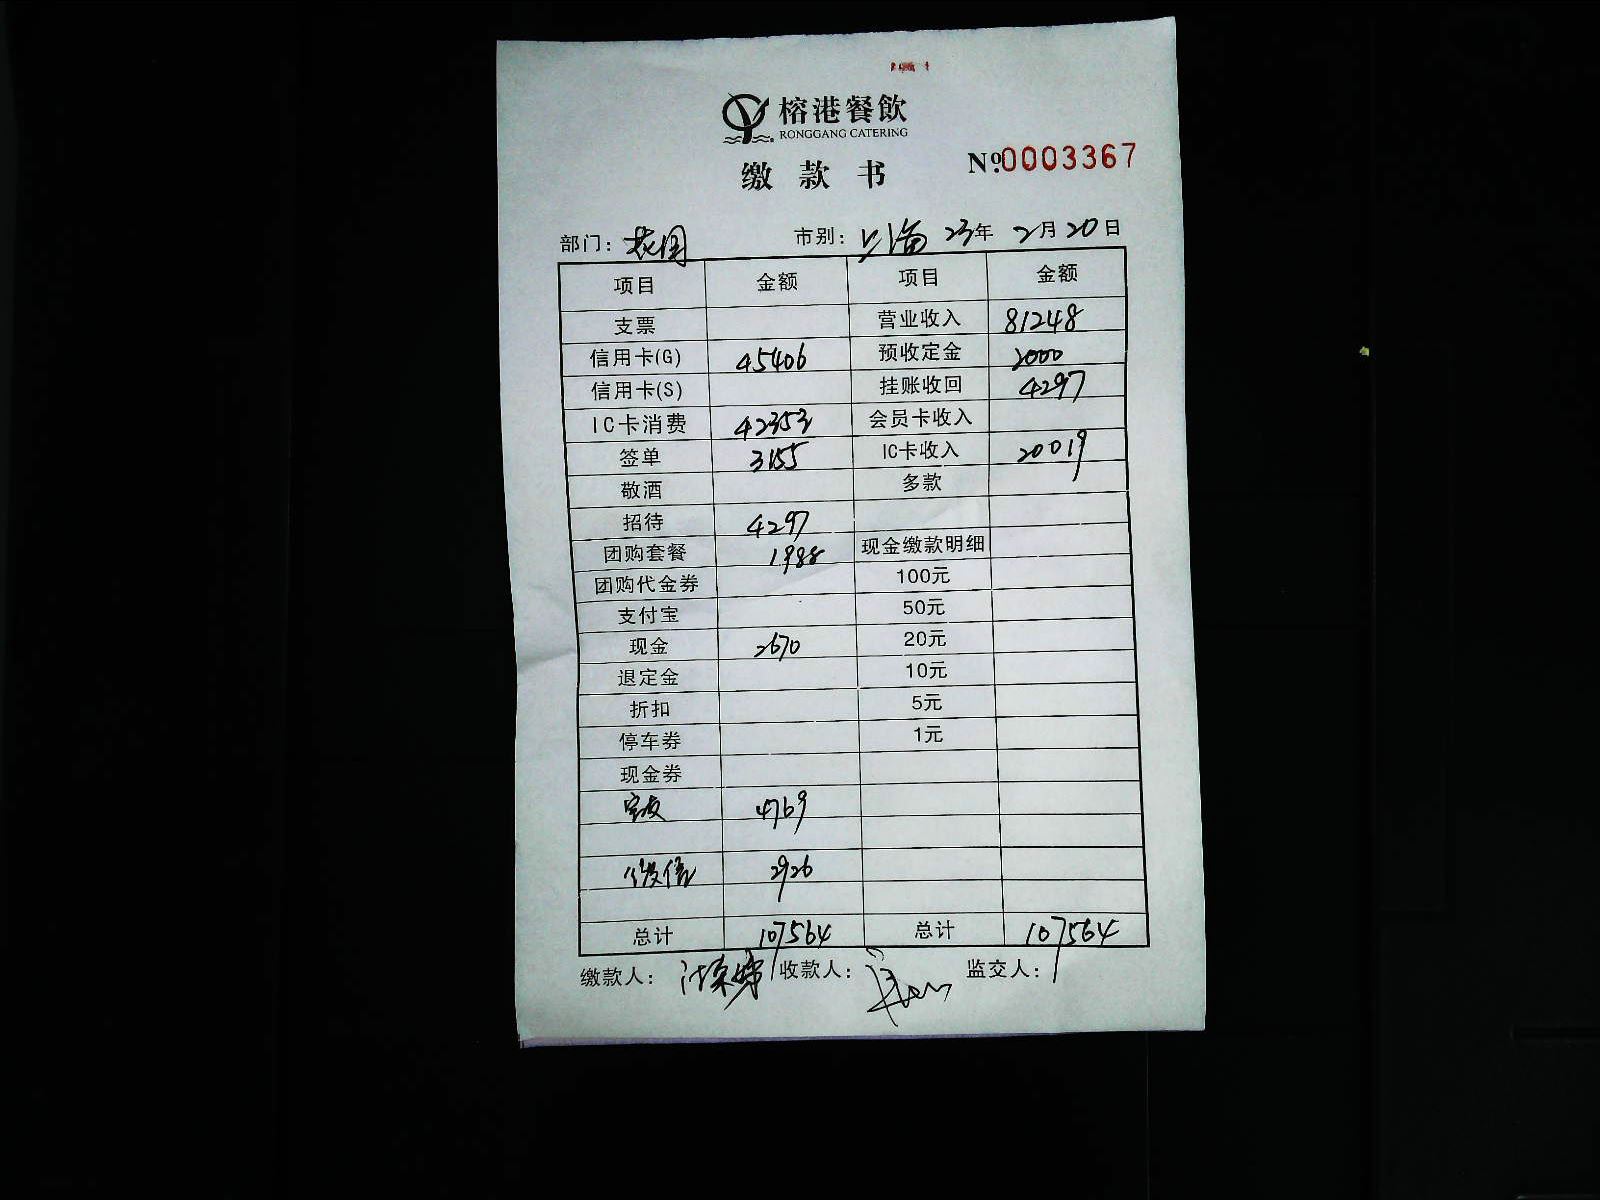 榕港餐飲
RONGGANG CATERING
缴款书
№ 0003367
部门: 市别: 上海 23年 2月 20日
项目 金额 项目 金额
支票 营业收入 81248
信用卡(G) 45406 预收定金 2000
信用卡(S) 挂账收回 4297
IC卡消费 42353 会员卡收入
签单 3155 IC卡收入 20019
敬酒 多款
招待 4297
团购套餐 1988 现金缴款明细
团购代金券 100元
支付宝 50元
现金 2670 20元
退定金 10元
折扣 5元
停车券 1元
现金券
4769
微信 2926
总计 107564 总计 107564
缴款人: 收款人: 监交人: